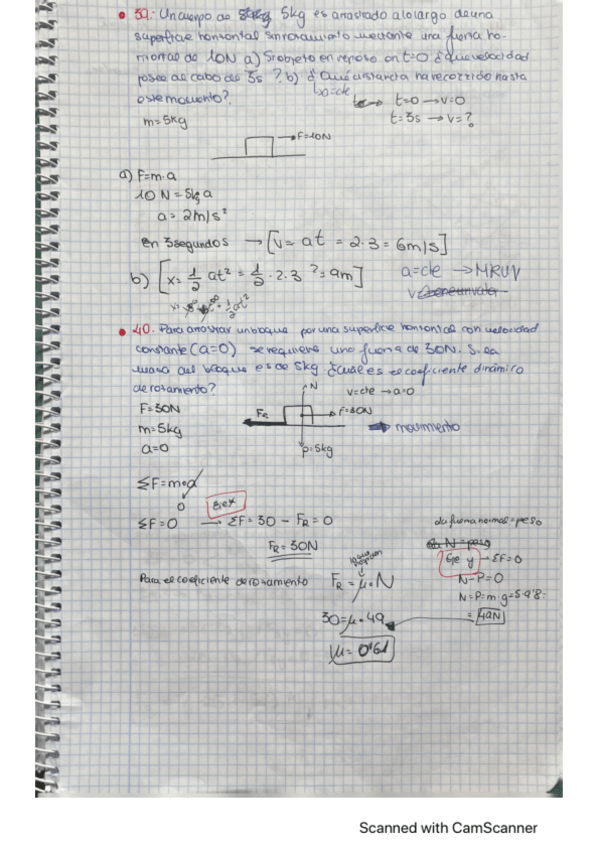 39. Un cuerpo de 5kg es arrastrado a lo largo de una
superficie horizontal sin rozamiento mediante una fuerza ho-
rizontal de 10N a) Si objeto en reposo en t=0 ¿que velocidad
posee al cabo de 3s? b) ¿Qué distancia ha recorrido hasta
este momento?
t=0 → v=0
m=5kg
t=3s → v=?
F=10N
a) F=m·a
10 N = 5kg a
a = 2m/s²
en 3 segundos → [v= at = 2·3 = 6m/s]
b) [x= 1/2 at² = 1/2 · 2·3² = 9m]
a=cte → MRUV
40. Para arrastrar un bloque por una superficie horizontal con velocidad
constante (a=0) se requiere una fuerza de 30N. Si la
masa del bloque es de 5kg. ¿Cual es el coeficiente dinámico
de rozamiento?
N
v=cte → a=0
F=30N
FR
F=30N
m=5kg
movimiento
a=0
p=5kg
ΣF=m·a
0
Eje x
ΣF=0 → ΣF= 30 - FR = 0
FR = 30N
la fuerza normal = peso
Eje y → ΣF=0
N-P=0
N=P=m·g=5·9'8=
= 49N
Para el coeficiente de rozamiento FR = μ·N
30=μ·49
μ= 0'61
Scanned with CamScanner